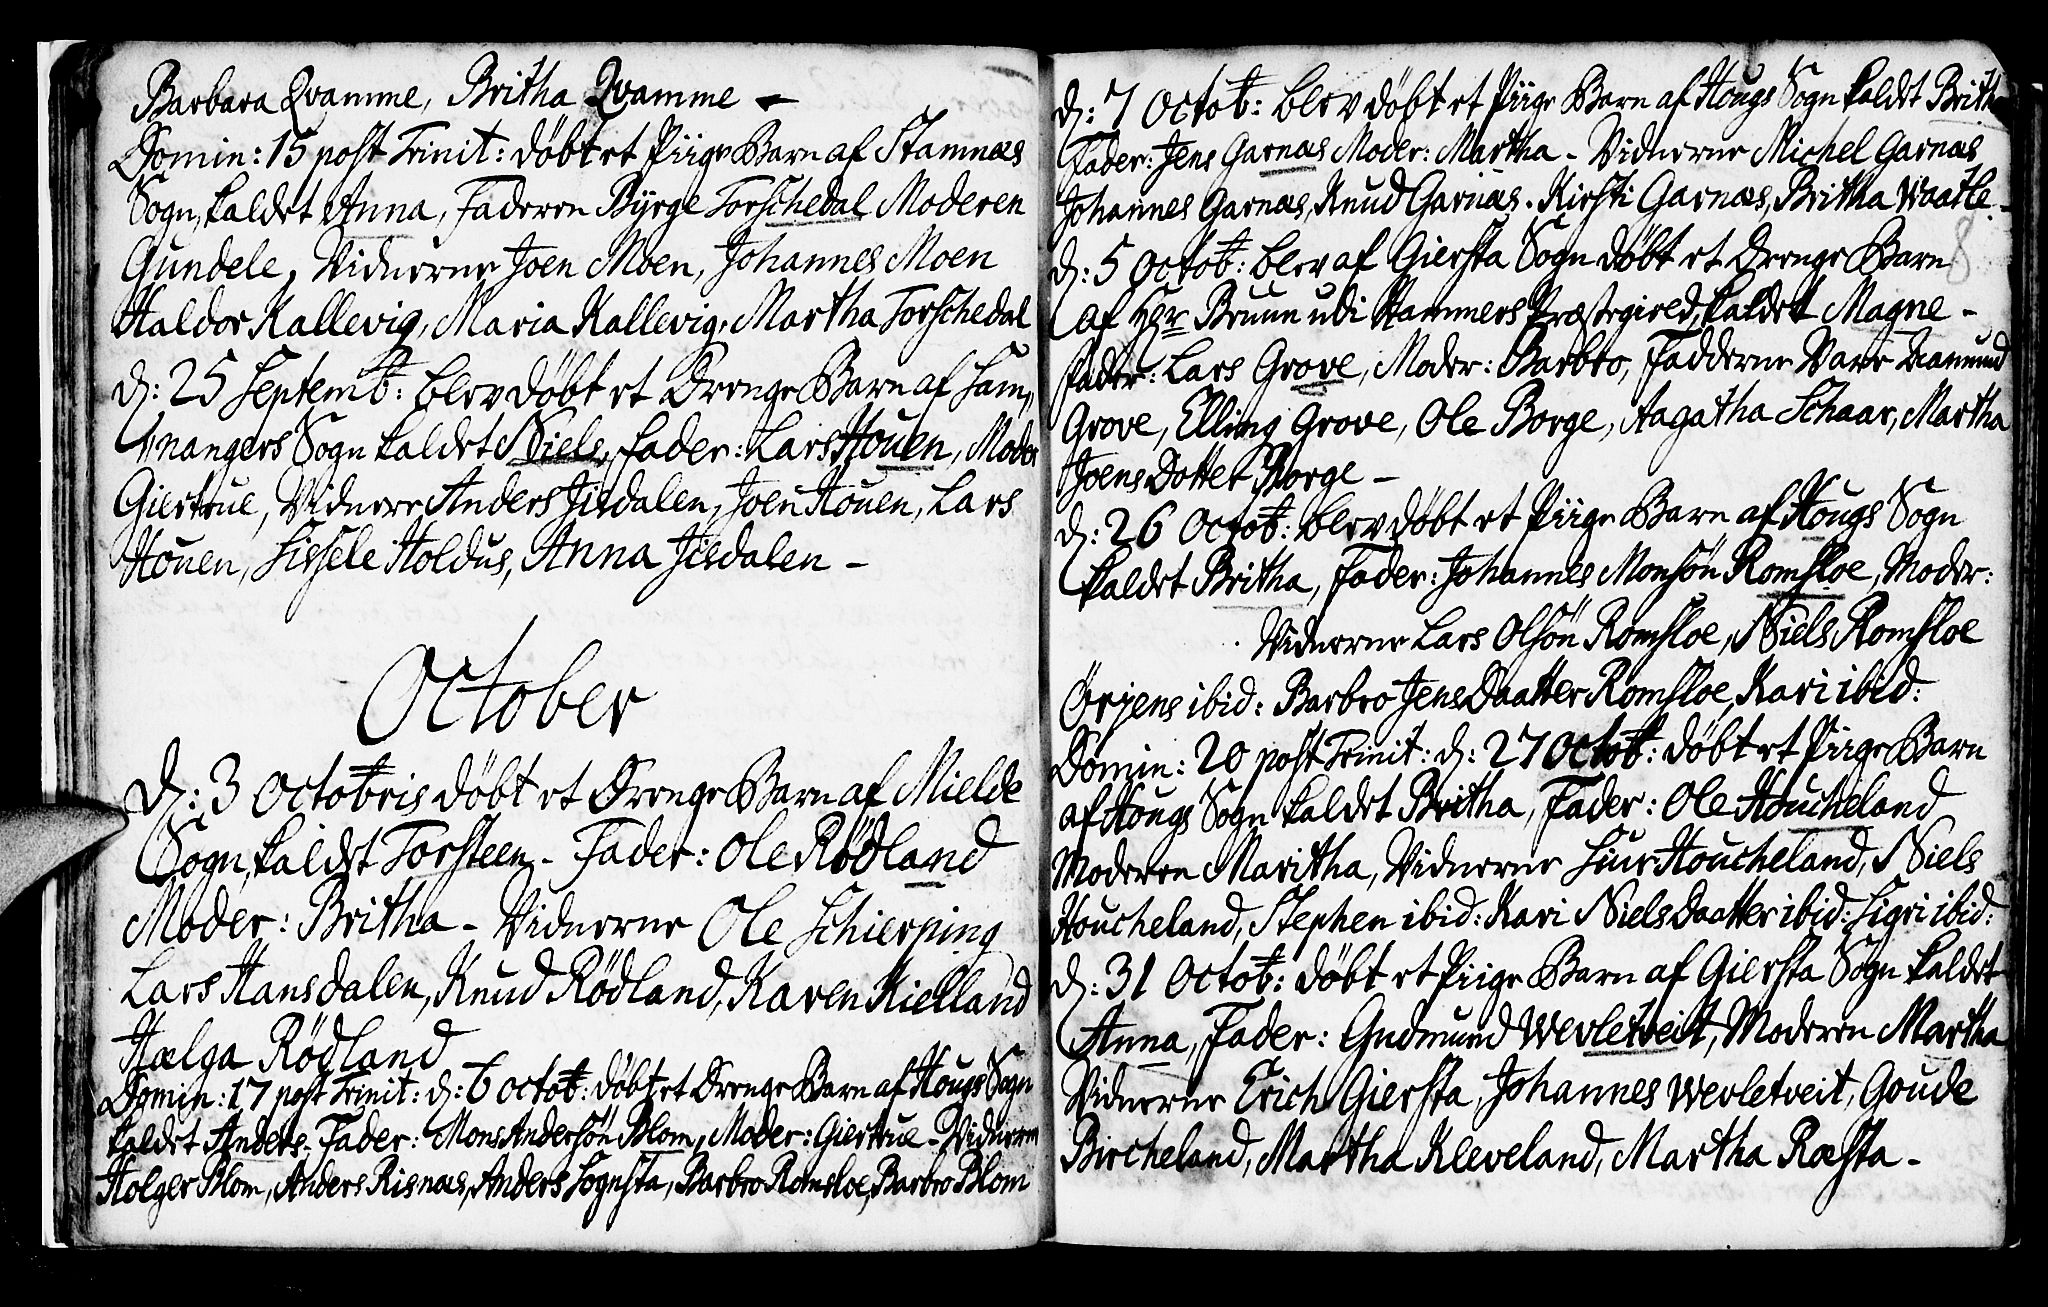 Barbara Qvamme, Britha Qvamme –
Domin: 15 post Trinit: döbt et Piige Barn af Stamnæs
Sogn, kaldet Anna, Faderen Byrge Torschedal Moderen
Gundele, Vidnerne Joen Moen, Johannes Moen
Haldor Kallevig, Maria Kallevig, Martha Torschedal
D: 25 Septemb: blev döbt et Drenge Barn af Sam„
„nangers Sogn kaldet Niels, Fader: Lars Houen, Moder
Giertrue, Vidnere Anders Jisdalen, Joen Houen, Lars
Houen, Sissele Holdus, Anna Jisdalen –
October
D: 3 Octobris döbt et Drenge Barn af Mielde
Sogn, kaldet Torsteen – Fader: Ole Rödland
Moder: Britha – Vidnerne Ole Schierping
Lars Hansdalen, Knud Rödland, Karen Kielland
Hælga Rödland
Domin: 17 post Trinit: d: 6 octob: döbt et Drenge Barn af Hougs Sogn
kaldet Anders – Fader: Mons Andersön Blom, Moder: Giertrue – Vidnerne
Holger Blom, Anders Risnæs, Anders Sognsta, Barbro Romsloe, Barbro Blom
D: 7 Octob: blev döbt et Piige Barn af Hougs Sogn kaldet Britha
Fader: Jens Garnæs Moder: Martha – Vidnerne Michel Garnæs
Johannes Garnæs, Knud Garnæs, Kirsti Garnæs, Britha Waatle –
8
D: 5 Octob: blev af Giersta Sogn döbt et Drenge Barn
af Hgr Bruun udi Hammers Præstegield, kaldet Magne –
Fader: Lars Grove, Moder: Barbro, Fadderne Vare Aamund
Grove, Elling Grove, Ole Borge, Aagatha Schaar, Martha
Joens Dotter Borge –
D: 26 Octob: blev döbt et Piige Barn af Hougs Sogn
kaldet Britha, Fader: Johannes Monsön Romsloe, Moder:
Vidnerne Lars Olsön Romsloe, Niels Romsloe
Örjens ibid: Barbro Jens Daatter Romsloe, Kari ibid:
Domin: 20 post Trinit: d: 27 Octob: döbt et Piige Barn
af Hougs Sogn kaldet Britha, Fader: Ole Houcheland
Moderen Maritha, Vidnerne Siur Houcheland, Niels
Houcheland, Stephen ibid: Kari Niels Daatter ibid: Sigri ibid:
D: 31 Octob: döbt et Piige Barn af Giersta Sogn kaldet
Anna, Fader: Gudmund Wevletveit, Moderen Martha
Vidnerne Erich Giersta, Johannes Wevletveit, Goude
Bircheland, Martha Kleveland, Martha Ræsta –